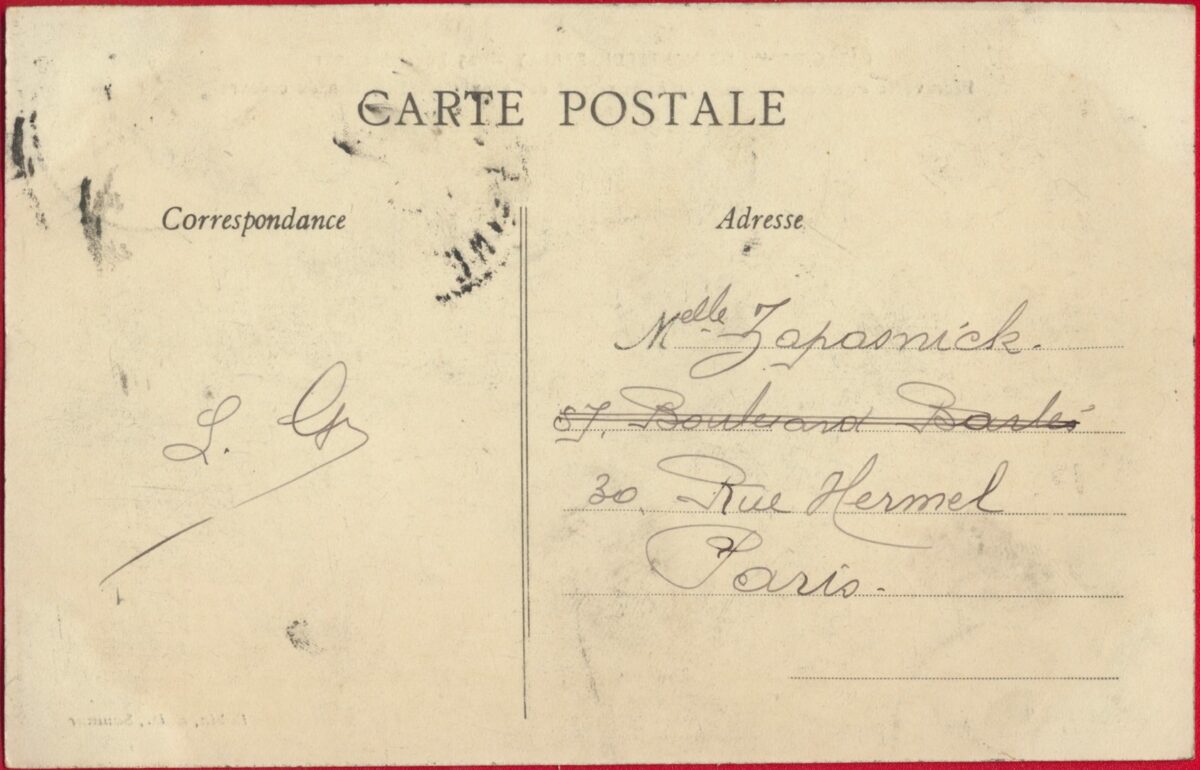 CARTE POSTALE
Correspondance
Adresse
L. G
Melle Zapasnick.
57, Boulevard Barbès
30, Rue Hermel
Paris.